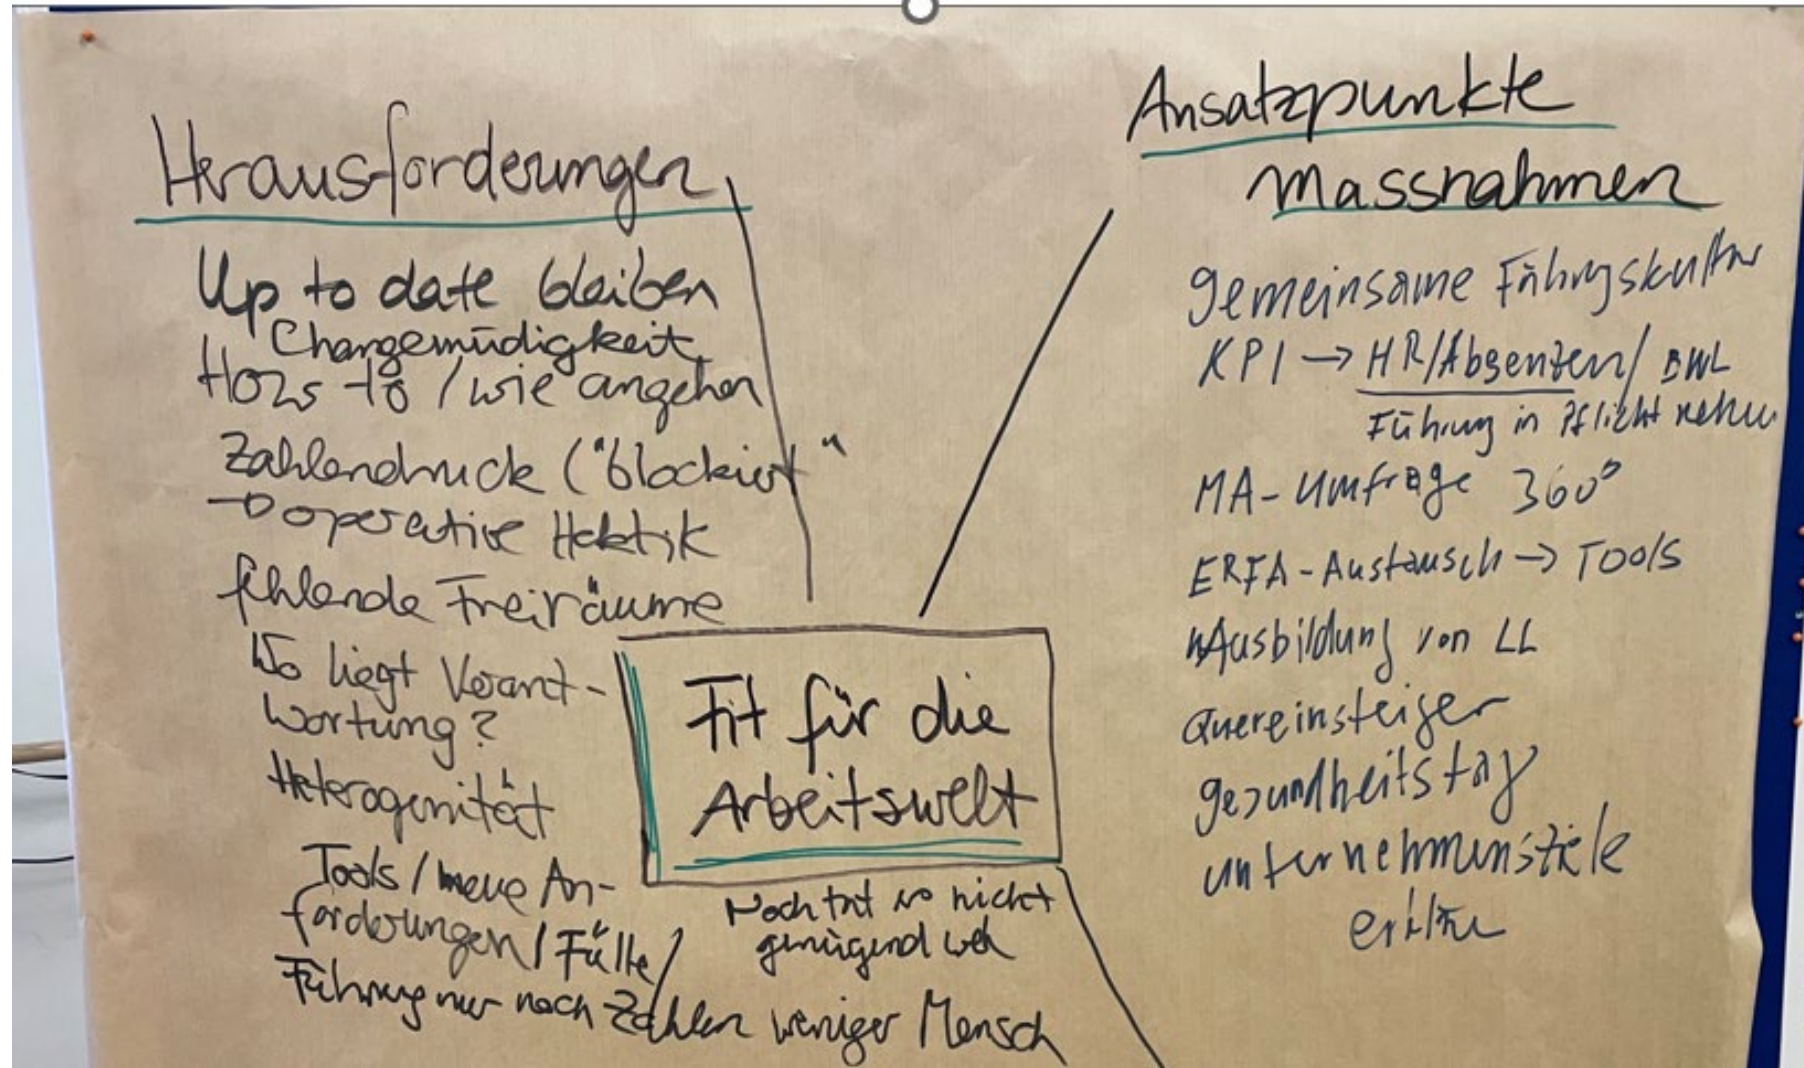 Herausforderungen
Up to date bleiben
Changemüdigkeit
How to / wie angehen
Zahlendruck ("blockiert"
→ operative Hektik
fehlende Freiräume
Wo liegt Verant-
wortung?
Heterogenität
Tools / neue An-
forderungen / Fülle /
Führung nur nach Zahlen weniger Mensch
Fit für die
Arbeitswelt
Noch tut es nicht
genügend weh
Ansatzpunkte
Massnahmen
gemeinsame Führungskultur
KPI → HR/Absenzen/ BWL
Führung in Pflicht nehmen
MA-Umfrage 360°
ERFA-Austausch → Tools
Ausbildung von LL
Quereinsteiger
gesundheitstag
unternehmensziele
erklären